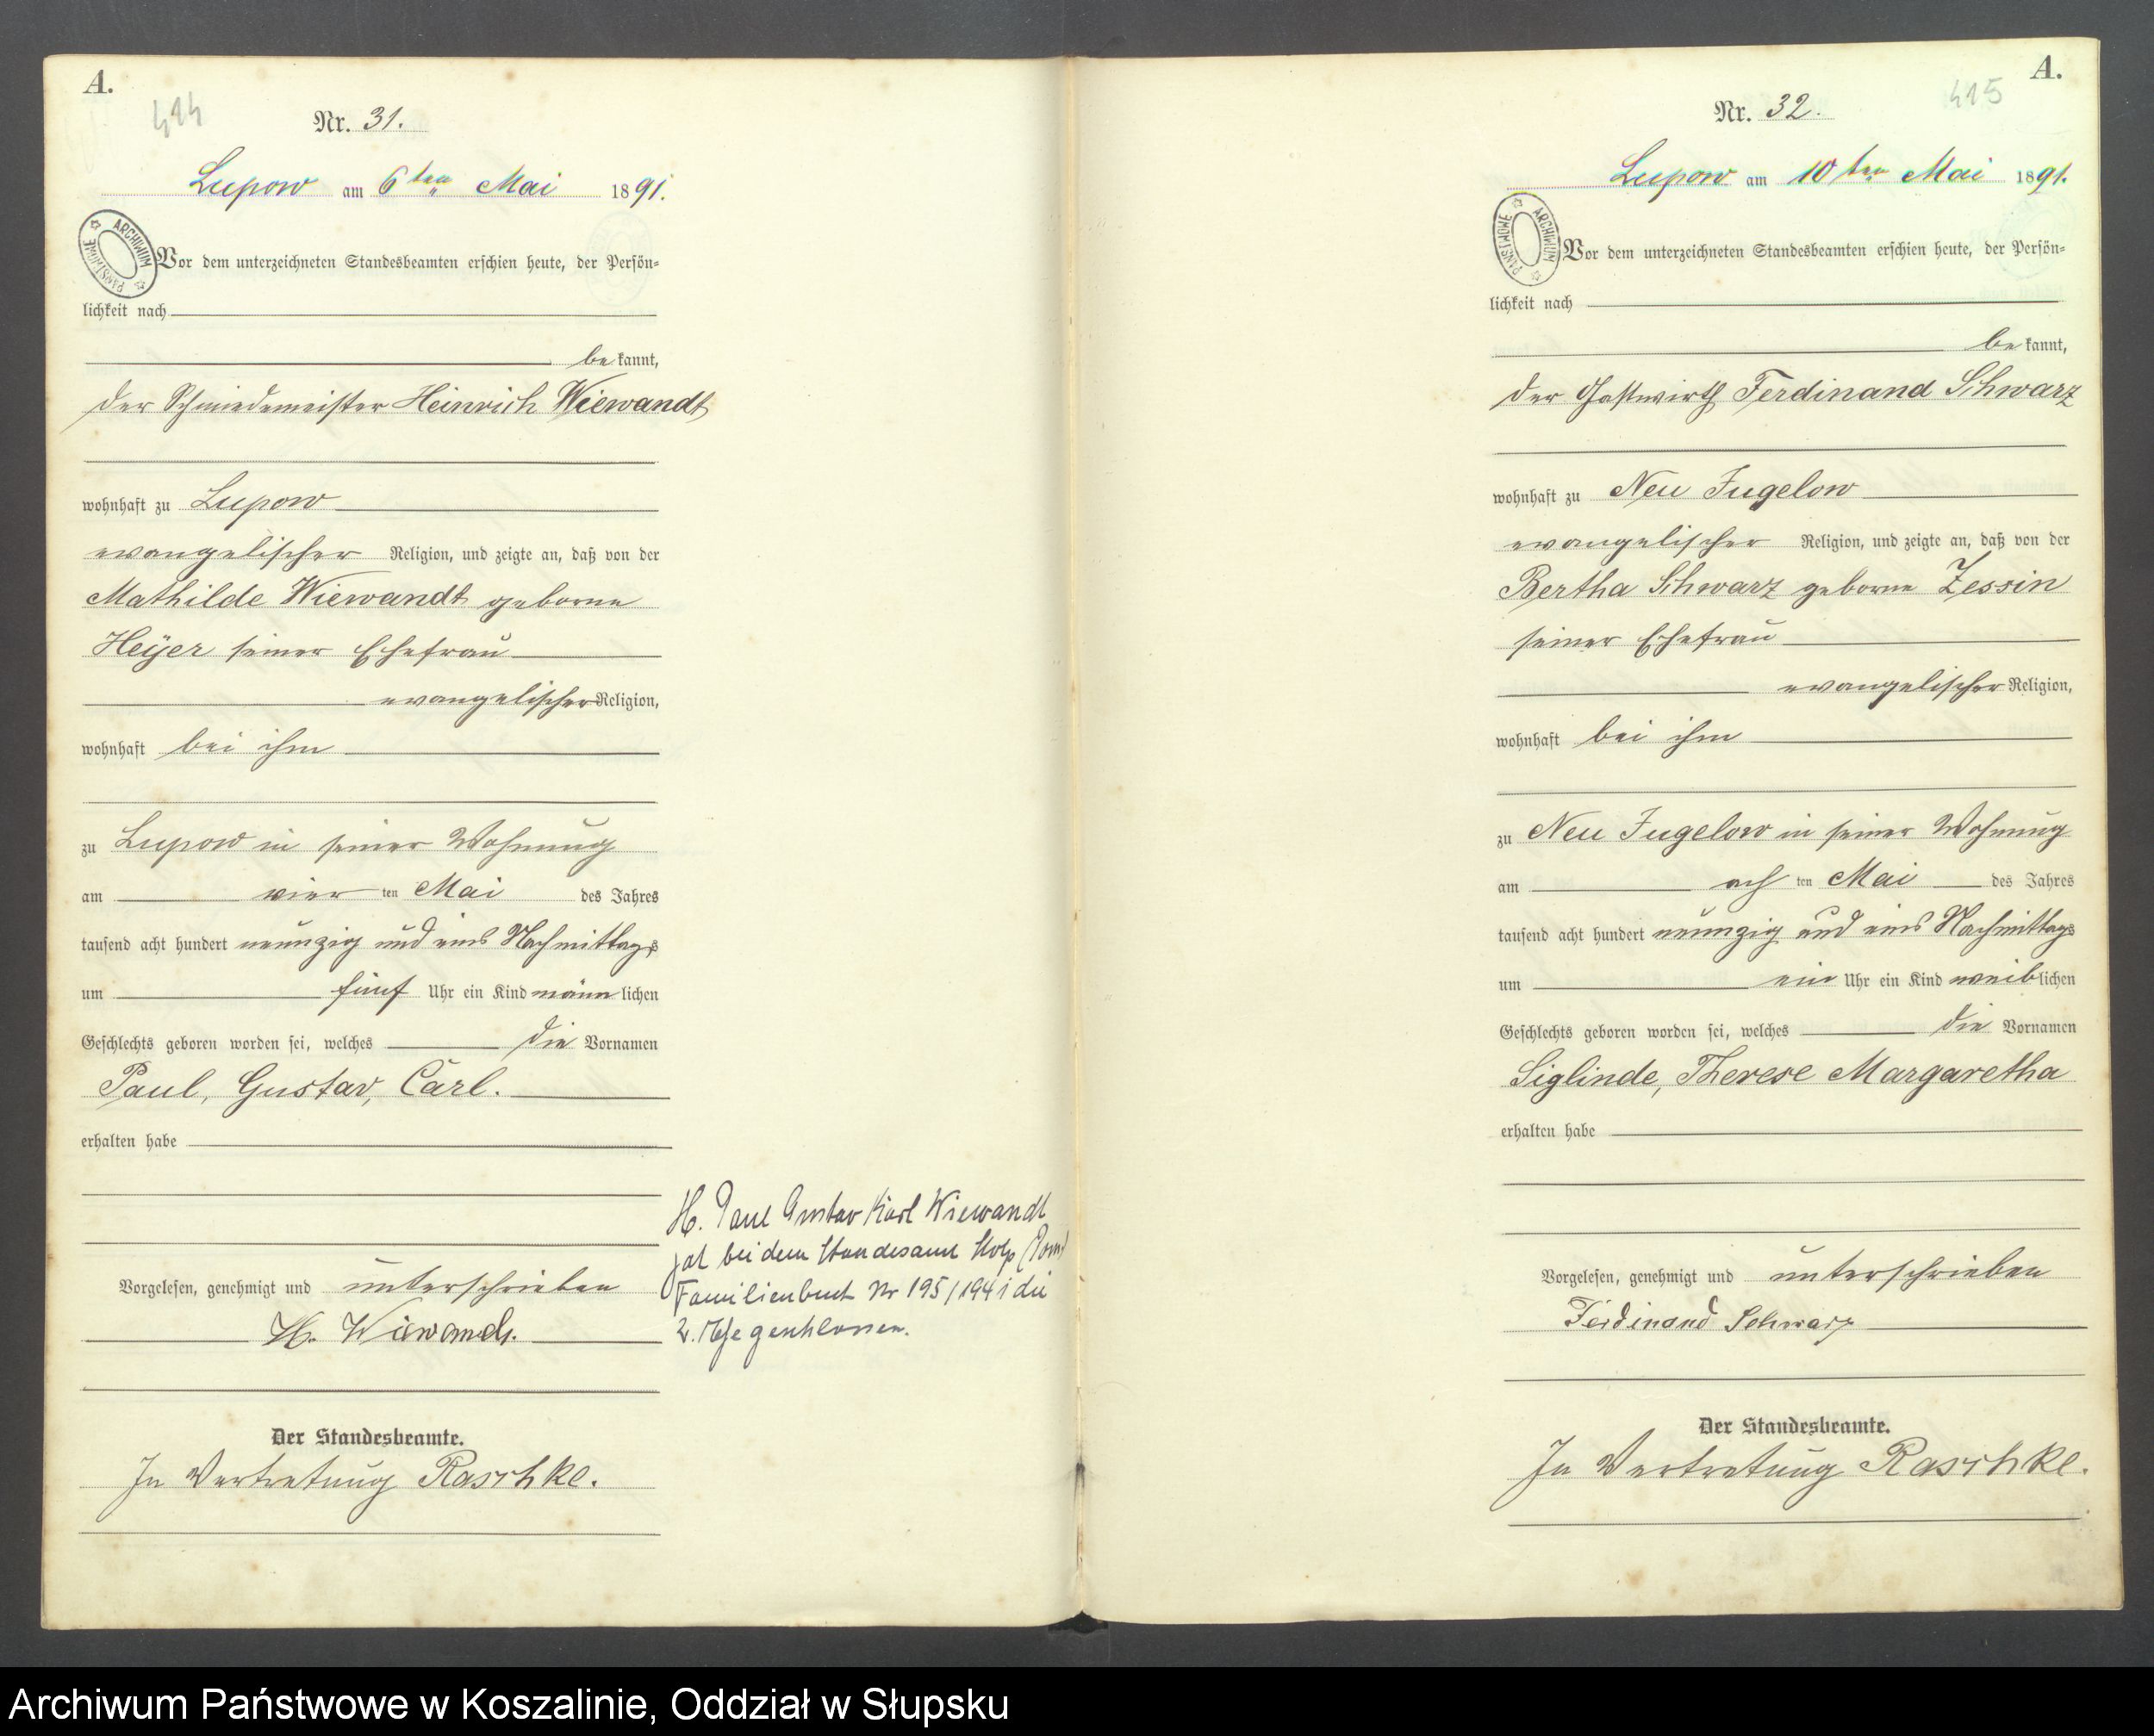 A.
414
Nr. 31.
Lupow am 6ten Mai 1891.
ARCHIWUM PAŃSTWOWE
Vor dem unterzeichneten Standesbeamten erschien heute, der Persön-
lichkeit nach
bekannt,
der Schmiedemeister Heinrich Wiewandt
wohnhaft zu Lupow
evangelischer Religion, und zeigte an, daß von der
Mathilde Wiewandt geborne
Heÿer seiner Ehefrau
evangelischer Religion,
wohnhaft bei ihm
zu Lupow in seiner Wohnung
am vier ten Mai des Jahres
tausend acht hundert neunzig und eins Nachmittags
um fünf Uhr ein Kind männlichen
Geschlechts geboren worden sei, welches die Vornamen
Paul, Gustav, Carl.
erhalten habe
Vorgelesen, genehmigt und unterschrieben
H. Wiewandt.
Der Standesbeamte.
In Vertretung Raschke.
H. Paul Gustav Karl Wiewandt
hat bei dem Standesamt Stolp (Pom)
Familienbuch Nr 195/1941 die
2. Ehe geschlossen.
A.
415
Nr. 32.
Lupow am 10ten Mai 1891.
ARCHIWUM PAŃSTWOWE
Vor dem unterzeichneten Standesbeamten erschien heute, der Persön-
lichkeit nach
bekannt,
der Gastwirth Ferdinand Schwarz
wohnhaft zu Neu Jugelow
evangelischer Religion, und zeigte an, daß von der
Bertha Schwarz geborne Zessin
seiner Ehefrau
evangelischer Religion,
wohnhaft bei ihm
zu Neu Jugelow in seiner Wohnung
am ach ten Mai des Jahres
tausend acht hundert neunzig und eins Nachmittags
um ein Uhr ein Kind weiblichen
Geschlechts geboren worden sei, welches die Vornamen
Siglinde, Therese Margaretha
erhalten habe
Vorgelesen, genehmigt und unterschrieben
Ferdinand Schwarz
Der Standesbeamte.
In Vertretung Raschke.
Archiwum Państwowe w Koszalinie, Oddział w Słupsku